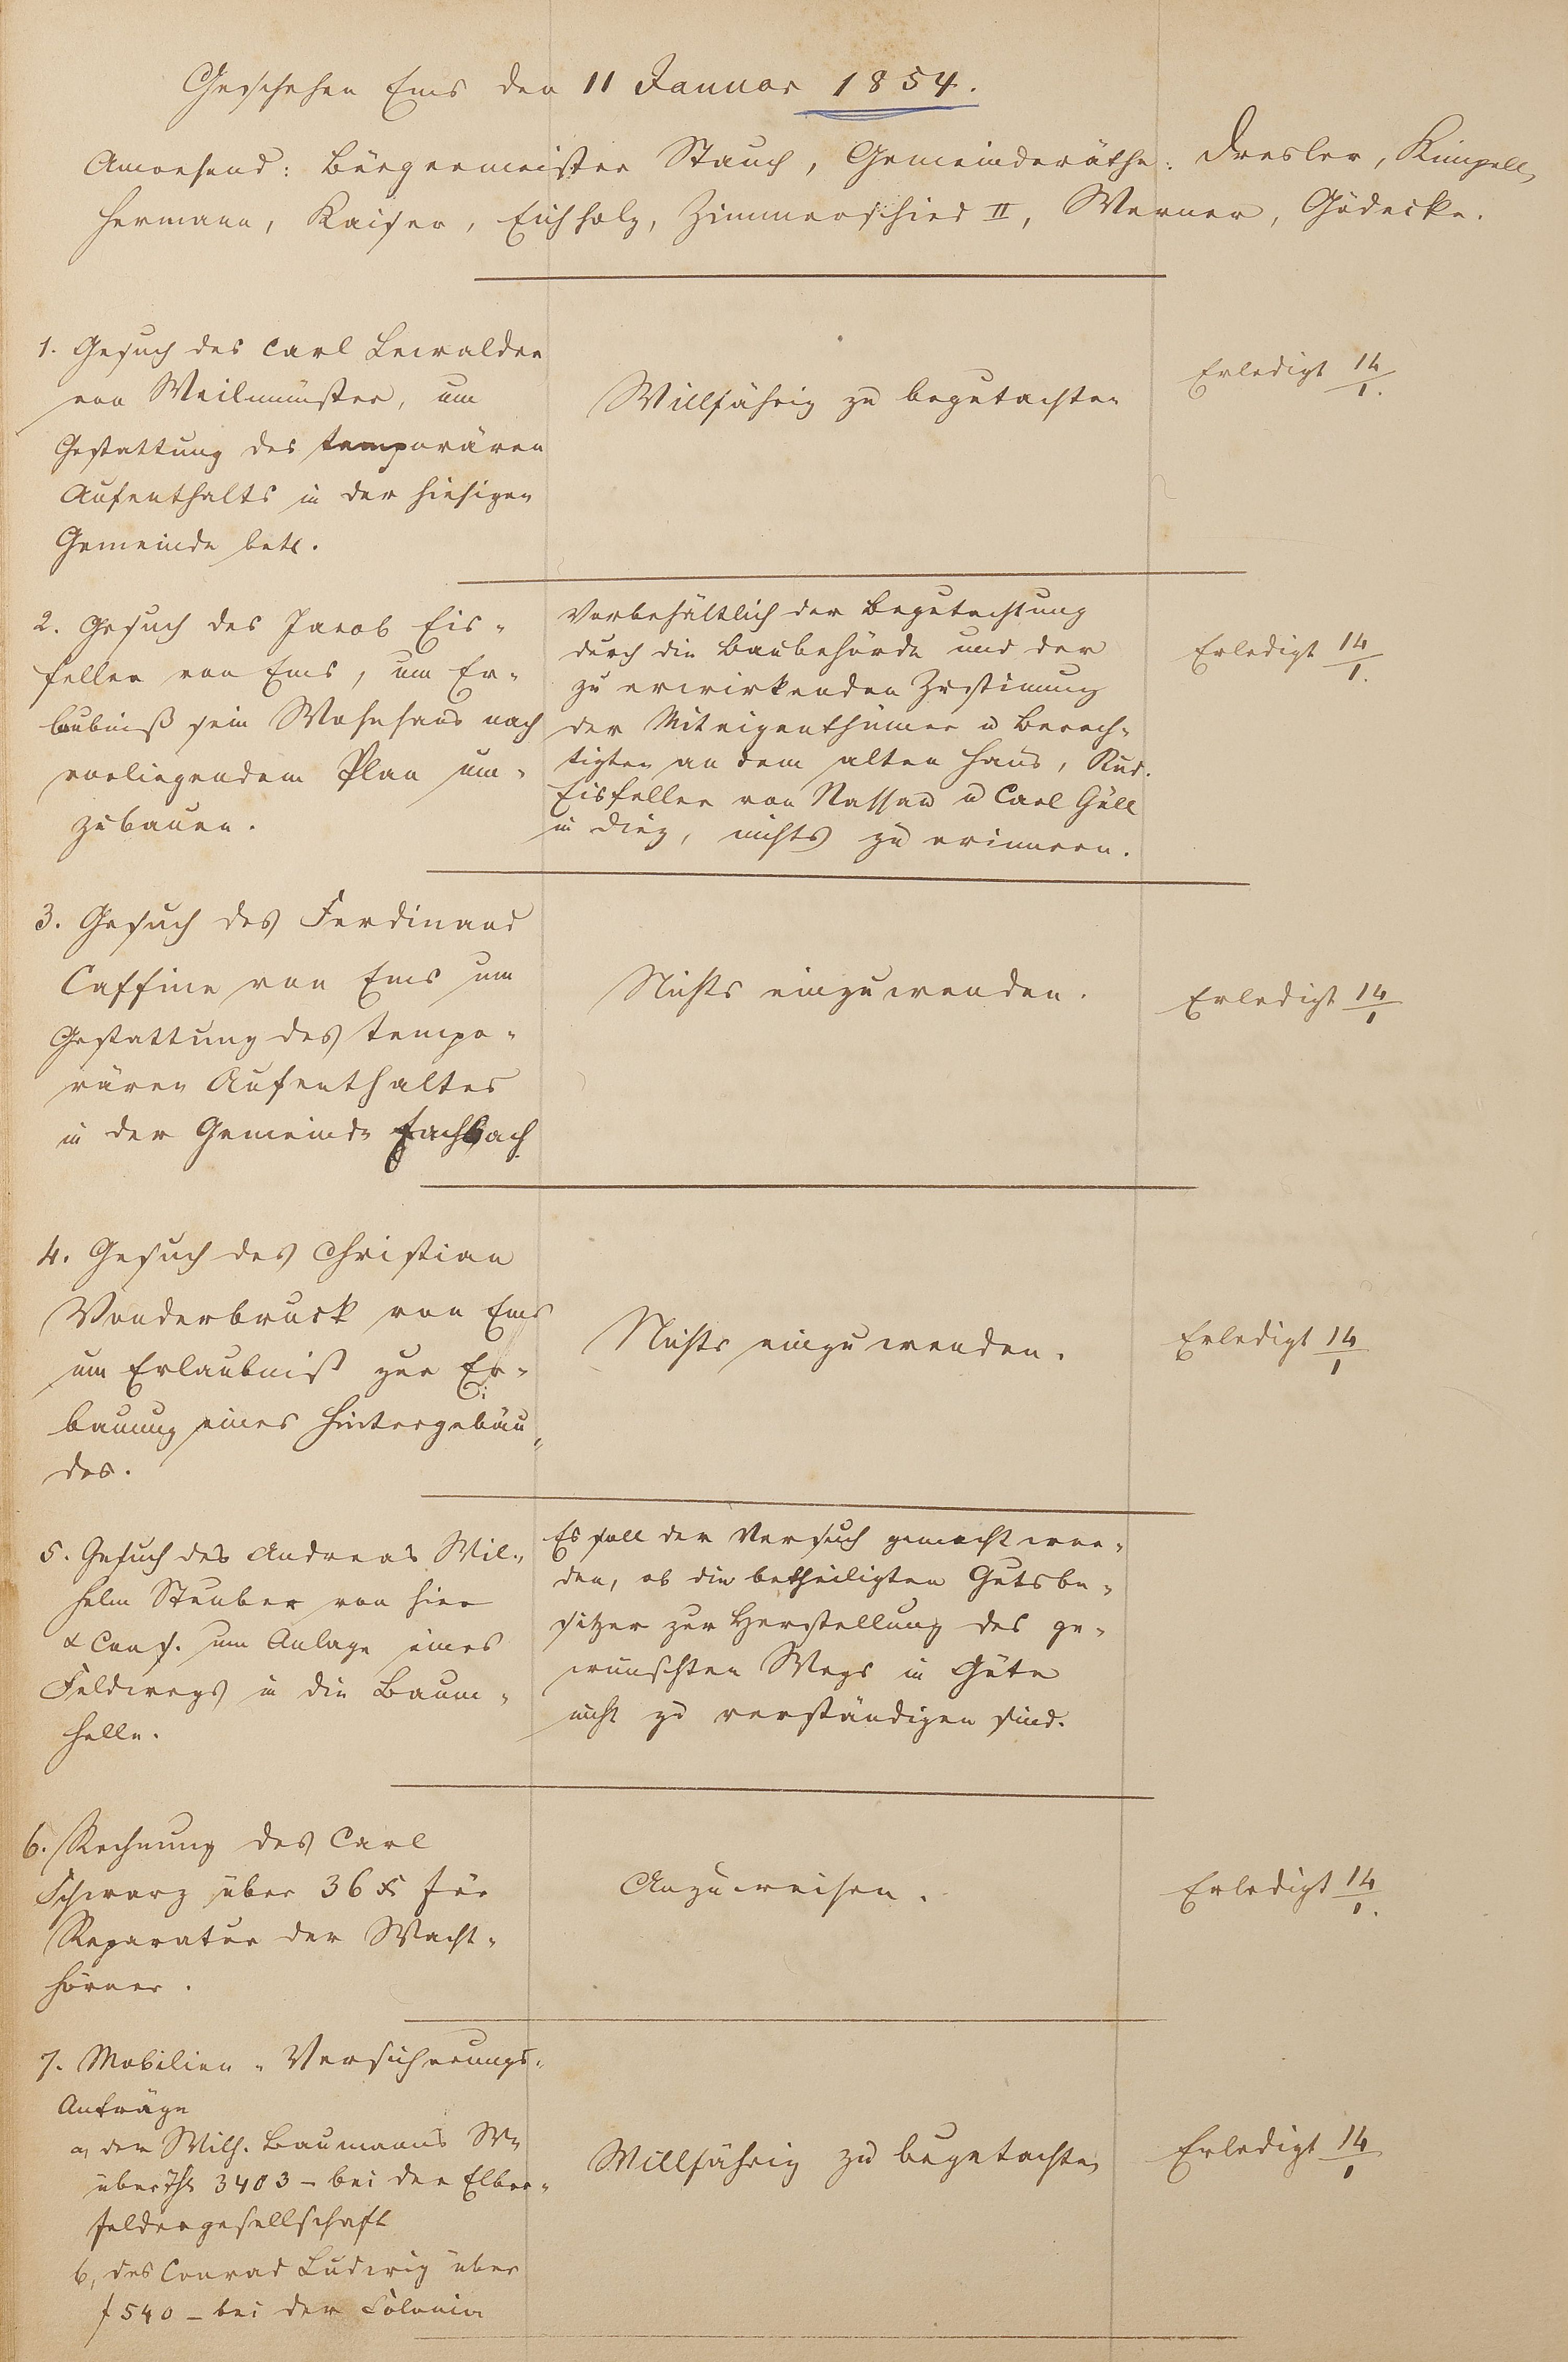 Geschehen Ems den 11 Januar 1854.
Anwesend: Bürgermeister Stauch, Gemeinderäthe: Dresler, Kimpell,
Hermann, Kaiser, Eichholz, Zimmerschied II, Werner, Gödecke.
1. Gesuch des Carl Lewalder
von Weilmünster, um
Gestattung des temporären
Aufenthalts in der hiesigen
Gemeinde betr.
Willfährig zu begutachten
Erledigt 14/1.
2. Gesuch des Jacob Eis-
feller von Ems, um Er-
laubniß sein Wohnhaus nach
vorliegendem Plan um-
zubauen.
Vorbehältlich der Begutachtung
durch die Baubehörde und der
zu erwirkenden Zustimung
der Miteigenthümer u Berech-
tigten an dem alten Haus, Rud.
Eisfeller von Nassau u Carl Güll
in Diez, nichts zu erinnern.
Erledigt 14/1.
3. Gesuch des Ferdinand
Caffine von Ems um
Gestattung des tempo-
rären Aufenthaltes
in der Gemeinde Fachbach
Nichts einzuwenden.
Erledigt 14/1
4. Gesuch des Christian
Vonderbruck von Ems
um Erlaubniß zur Er-
bauung eines Hintergebäu-
des.
Nichts einzuwenden.
Erledigt 14/1
5. Gesuch des Andreas Wil-
helm Steuber von hier
& Cons. um Anlage eines
Feldwegs in die Baum-
helle.
Es soll der Versuch gemacht wer-
den, ob die betheiligten Gutsbe-
sitzer zur Herstellung des ge-
wünschten Wegs in Güte
nicht zu verständigen sind.
6. Rechnung des Carl
Schwarz über 36 xr für
Reparatur der Wacht-
hörner.
Anzuweisen.
Erledigt 14/1.
7. Mobilien-Versicherungs-
Anträge
a, der Wilh. Baumanns We
über Thr 3403 – bei der Elber-
feldergesellschaft
b, des Conrad Ludwig über
f 540 – bei der Colonia
Willfährig zu begutachten
Erledigt 14/1